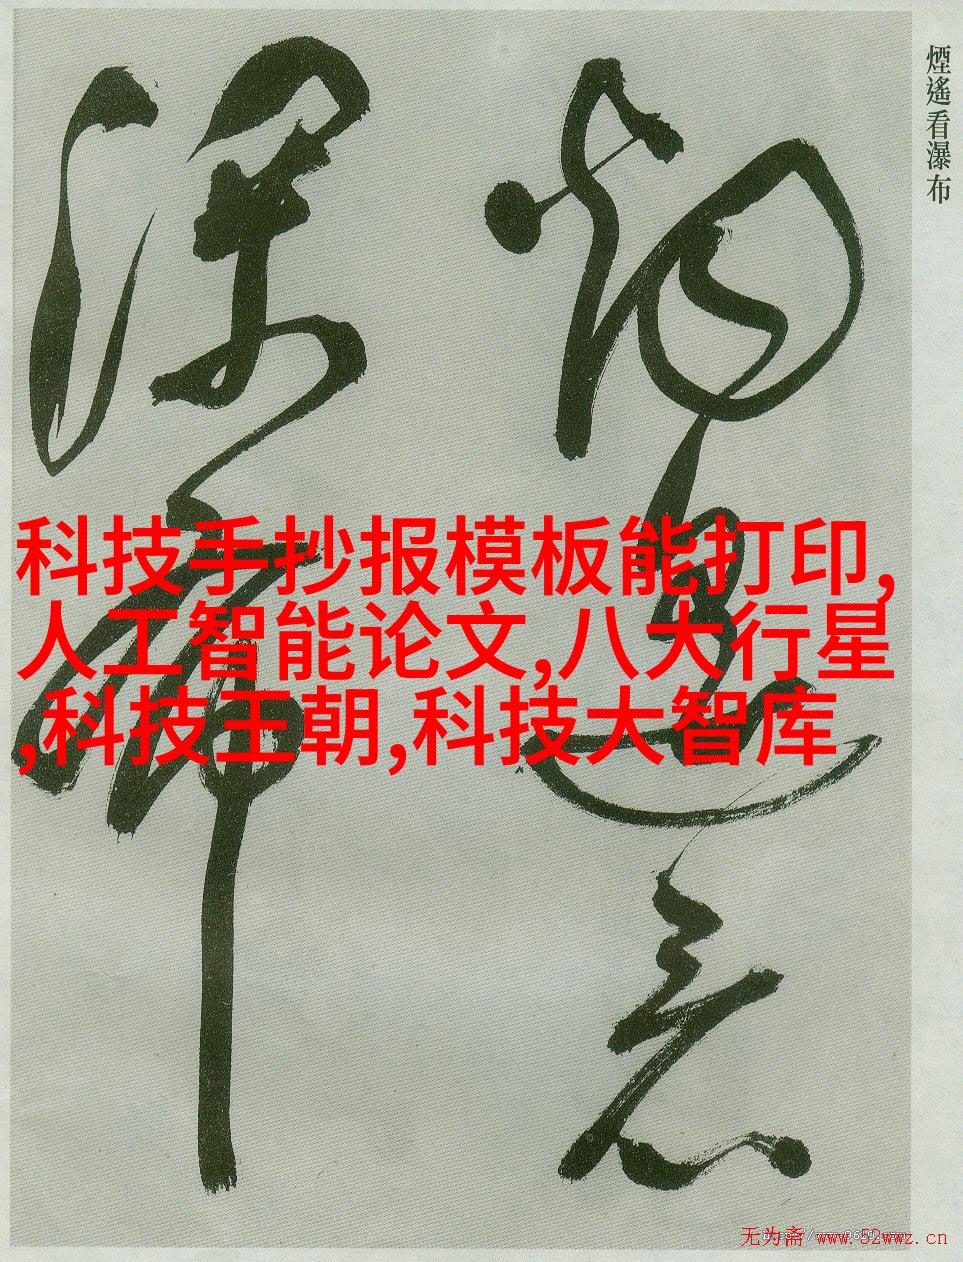 煙遙看瀑布
科技手抄报模板能打印,
人工智能论文,八大行星
,科技王朝,科技大智库
无为斋 www.52wwz.cn